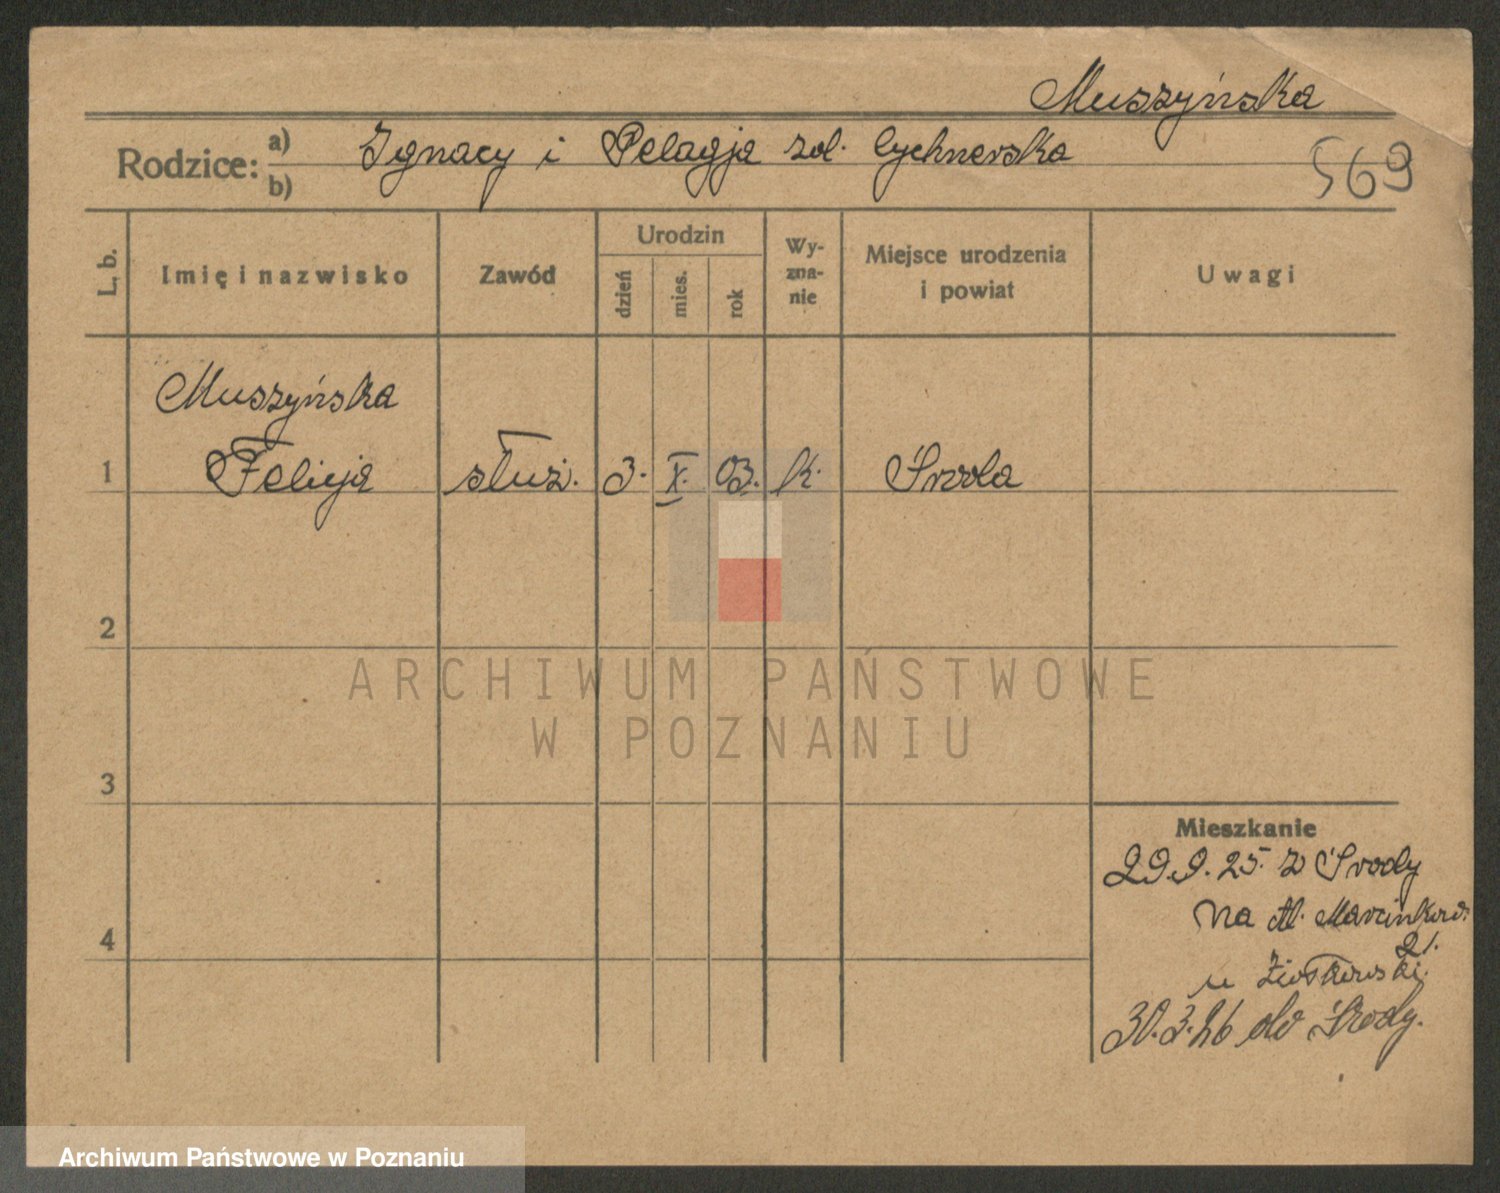 Muszyńska
Rodzice:
a) Ignacy i Pelagja zd. Cychnerska
b)
569
L. b.
Imię i nazwisko
Zawód
Urodzin
dzień
mies.
rok
Wy-
zna-
nie
Miejsce urodzenia
i powiat
Uwagi
Muszyńska
1 Felicja służ. 3. X. 03. k. Środa
2
3
4
Mieszkanie
29.9.25. z Środy
na Al. Marcinkow.
21.
u
30.3.26 do Środy.
ARCHIWUM PAŃSTWOWE
W POZNANIU
Archiwum Państwowe w Poznaniu